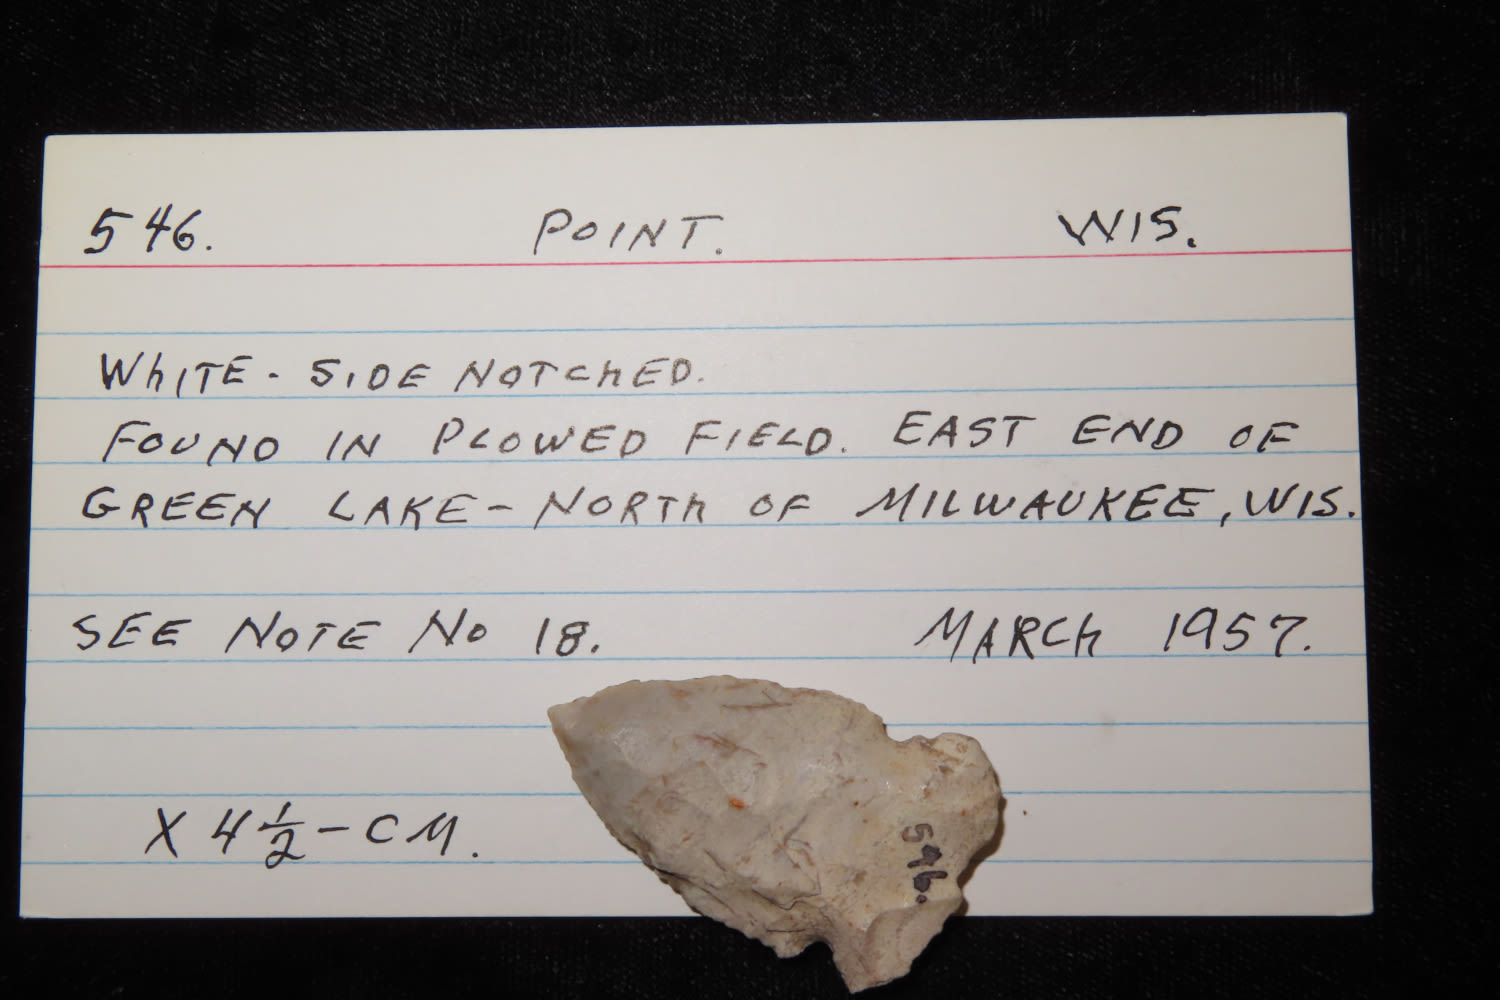 546. POINT. WIS.
WhITE - SIDE NOTChED.
FOUND IN PLOWED FIELD. EAST END OF
GREEN LAKE - NORTh OF MILWAUKEE, WIS.
SEE NOTE No 18. MARCh 1957.
X 4 1/2 - CM.
546.